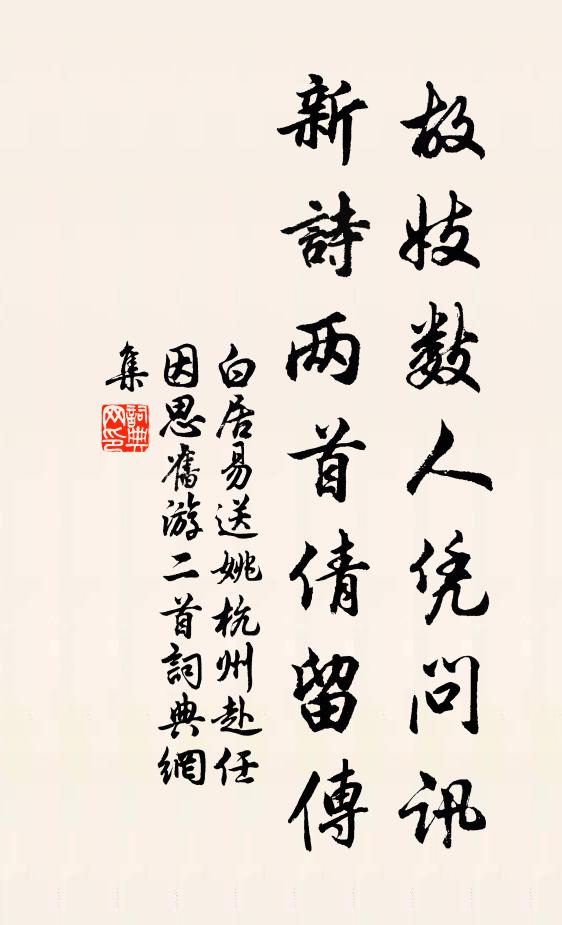 故妓数人凭问讯
新詩两首倩留傳
白居易送姚杭州赴任
因思舊游二首詞典網
集
詞典
网印